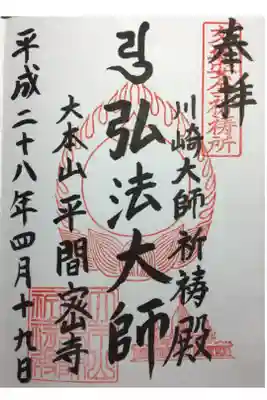 奉拝
川崎大師祈祷殿
弘法大師
大本山平間密寺
平成二十八年四月十九日